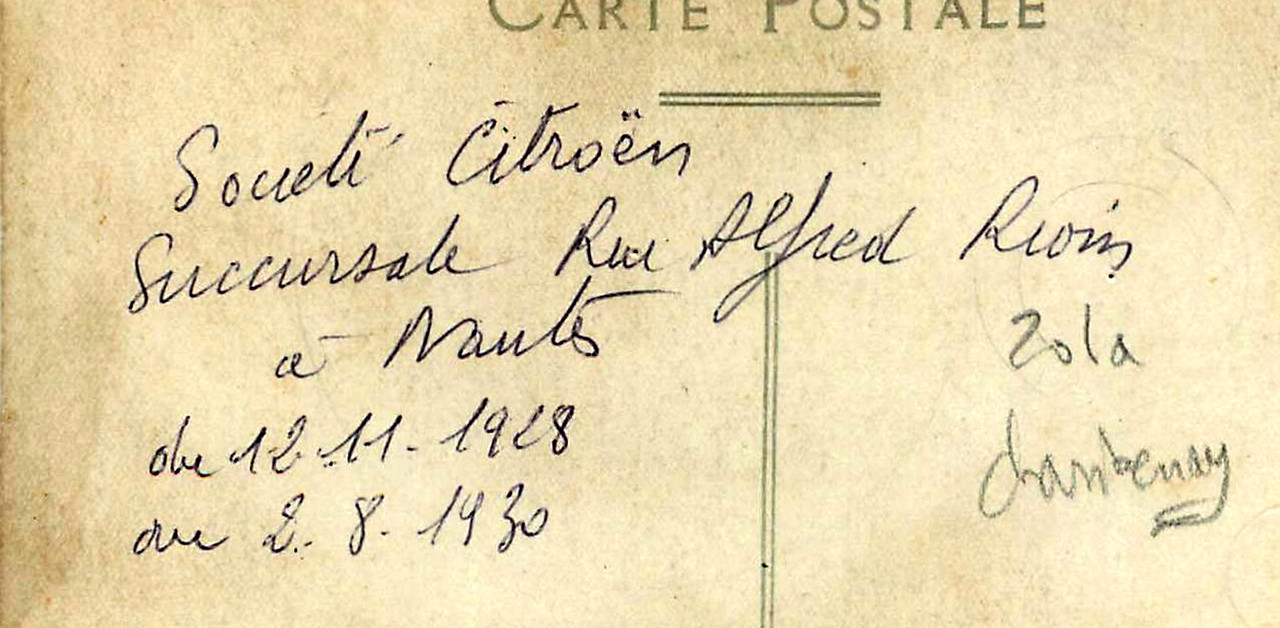 CARTE POSTALE
Société Citroën
Succursale Rue Alfred Rivoin
à Nantes
du 12.11.1928
au 2.8.1930
Zola
Chantenay